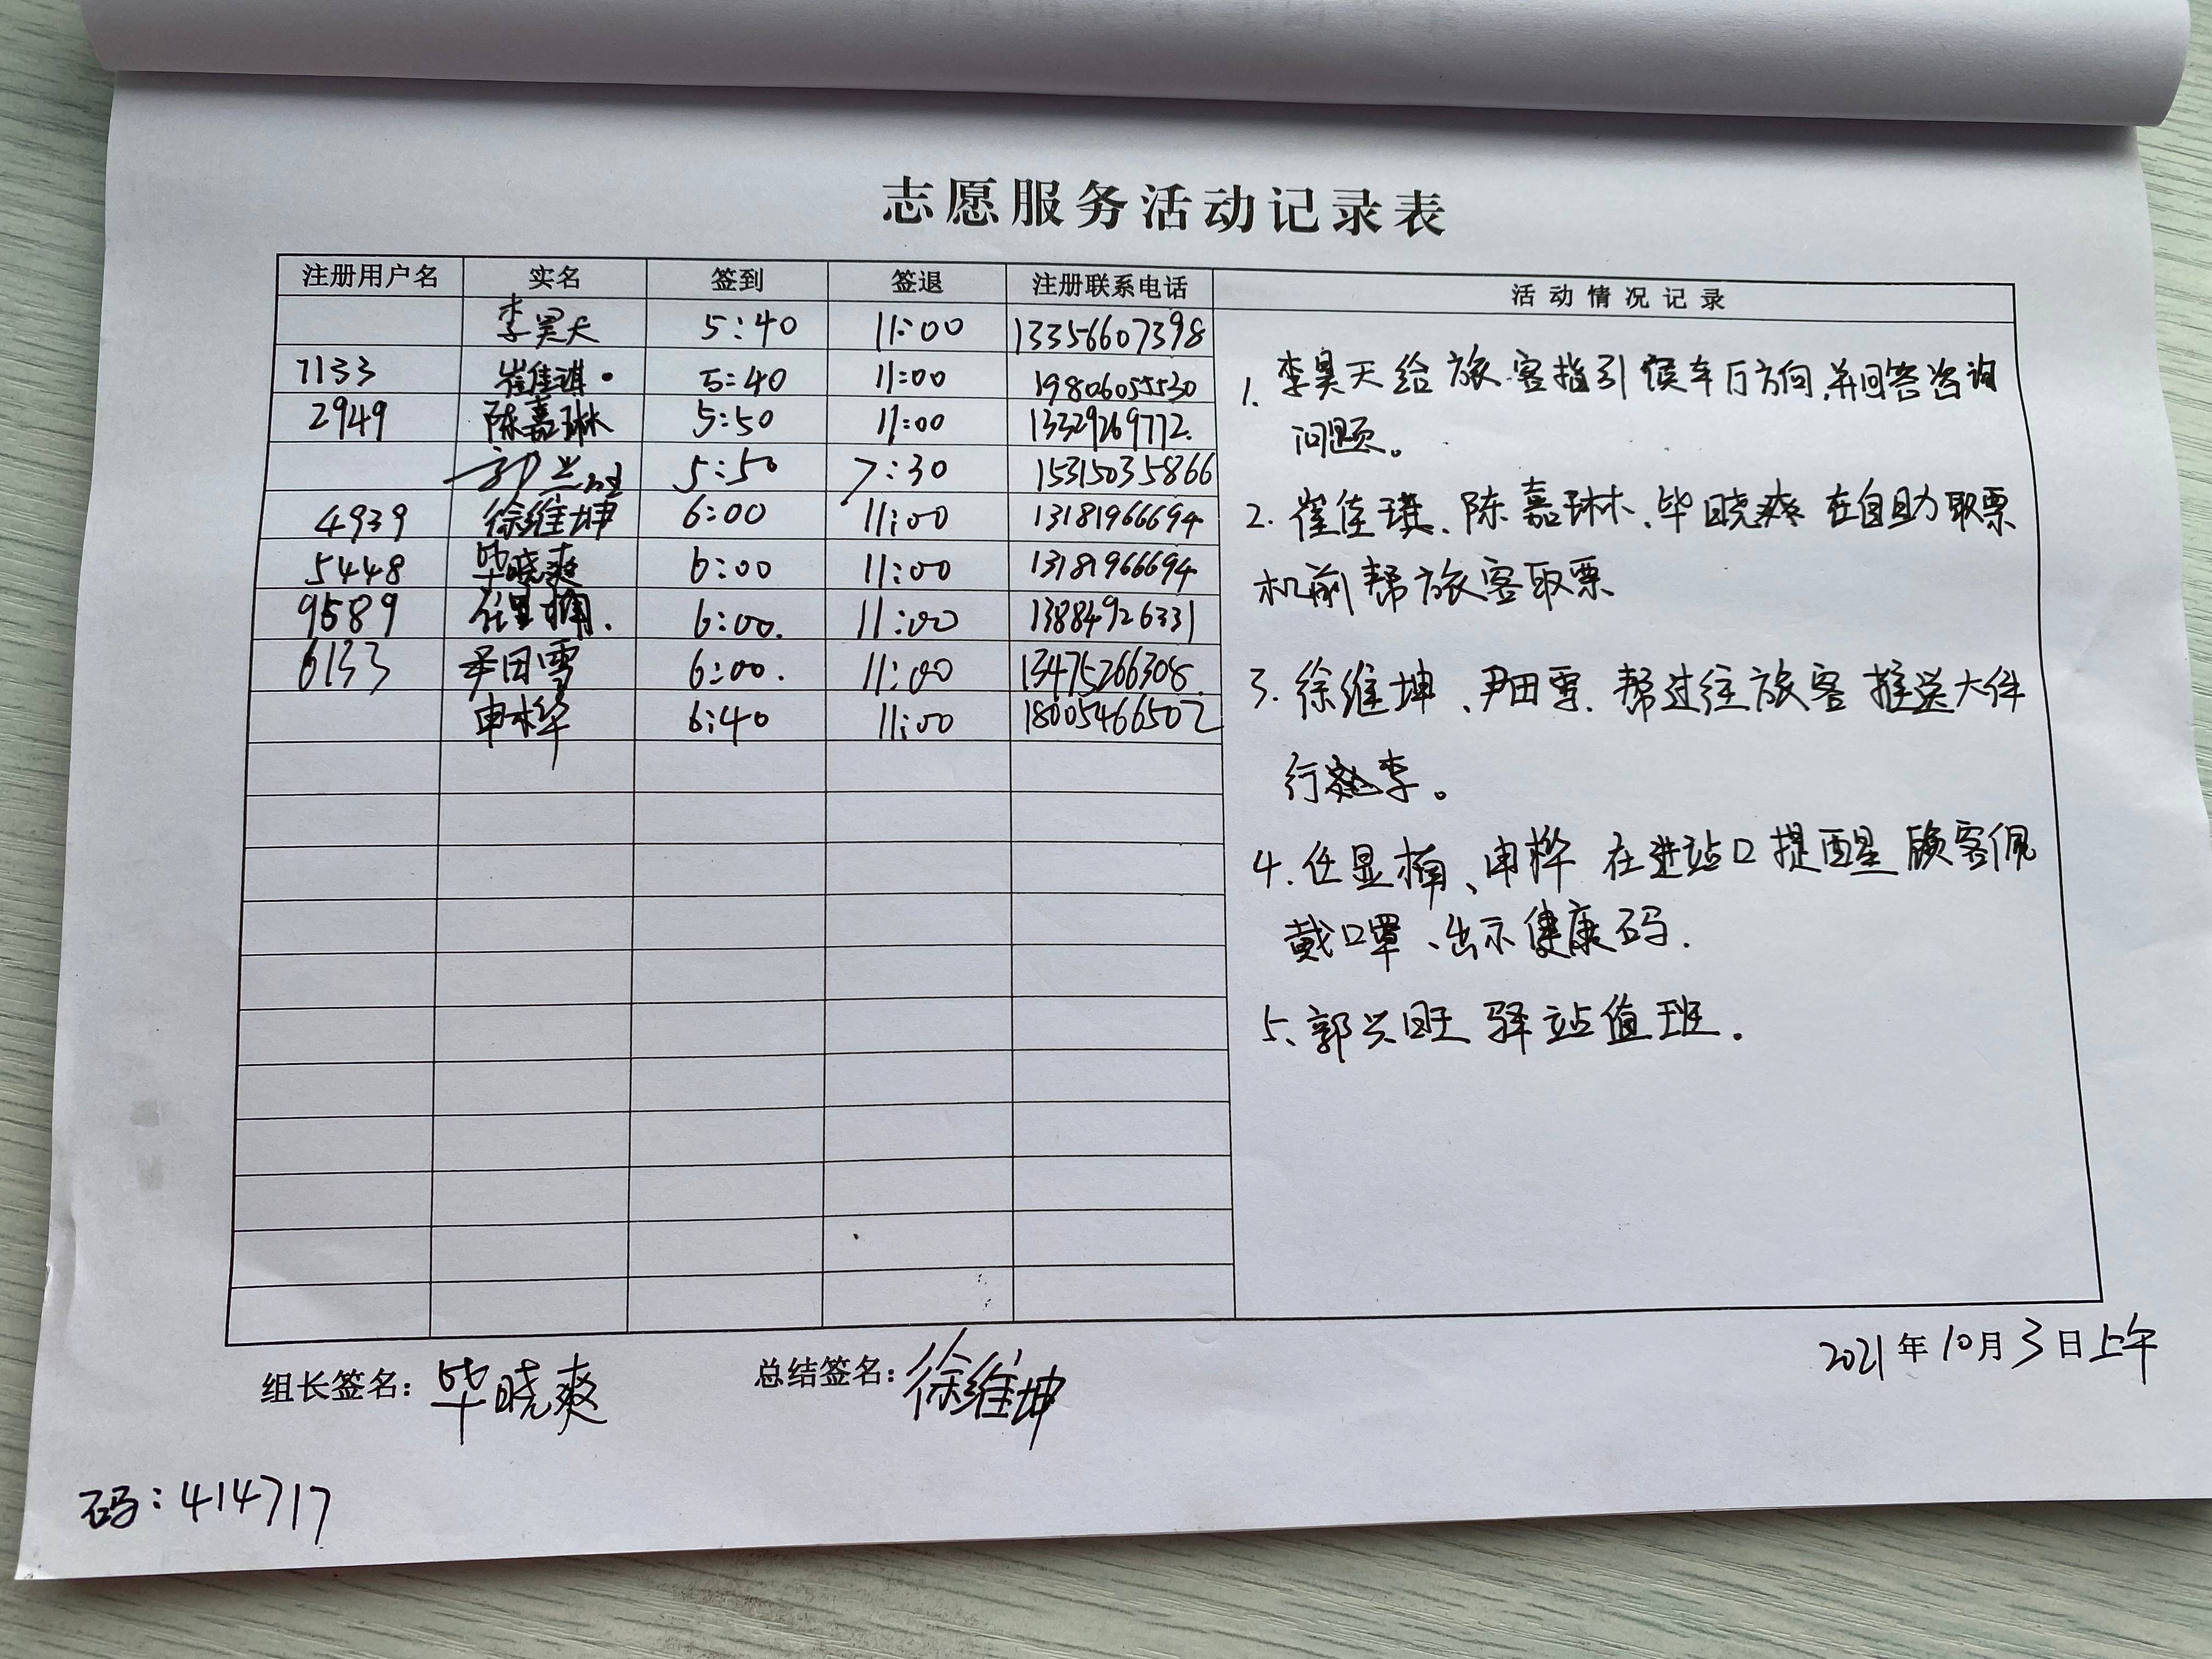 志愿服务活动记录表
注册用户名 实名 签到 签退 注册联系电话 活动情况记录
李昊天 5:40 11:00 13356607398
7133 崔佳琪. 5:40 11:00 19806055530
2949 陈嘉琳 5:50 11:00 13329269772.
郭兴旺 5:50 7:30 15315035866
4939 徐维坤 6:00 11:00 13181966694
5448 毕晓爽 6:00 11:00 13181966694
9589 任显楠. 6:00. 11:00 13884926331
6133 尹田雪 6:00. 11:00 13475266308.
申桦 6:40 11:00 18005466502
1. 李昊天给旅客指引候车厅方向,并回答咨询
问题。
2. 崔佳琪、陈嘉琳、毕晓爽在自助取票
机前帮旅客取票
3. 徐维坤、尹田雪.帮过往旅客推送大件
行李。
4. 任显楠、申桦在进站口提醒顾客佩
戴口罩、出示健康码.
5、郭兴旺驿站值班.
组长签名: 毕晓爽 总结签名: 徐维坤 2021年10月3日上午
码:414717